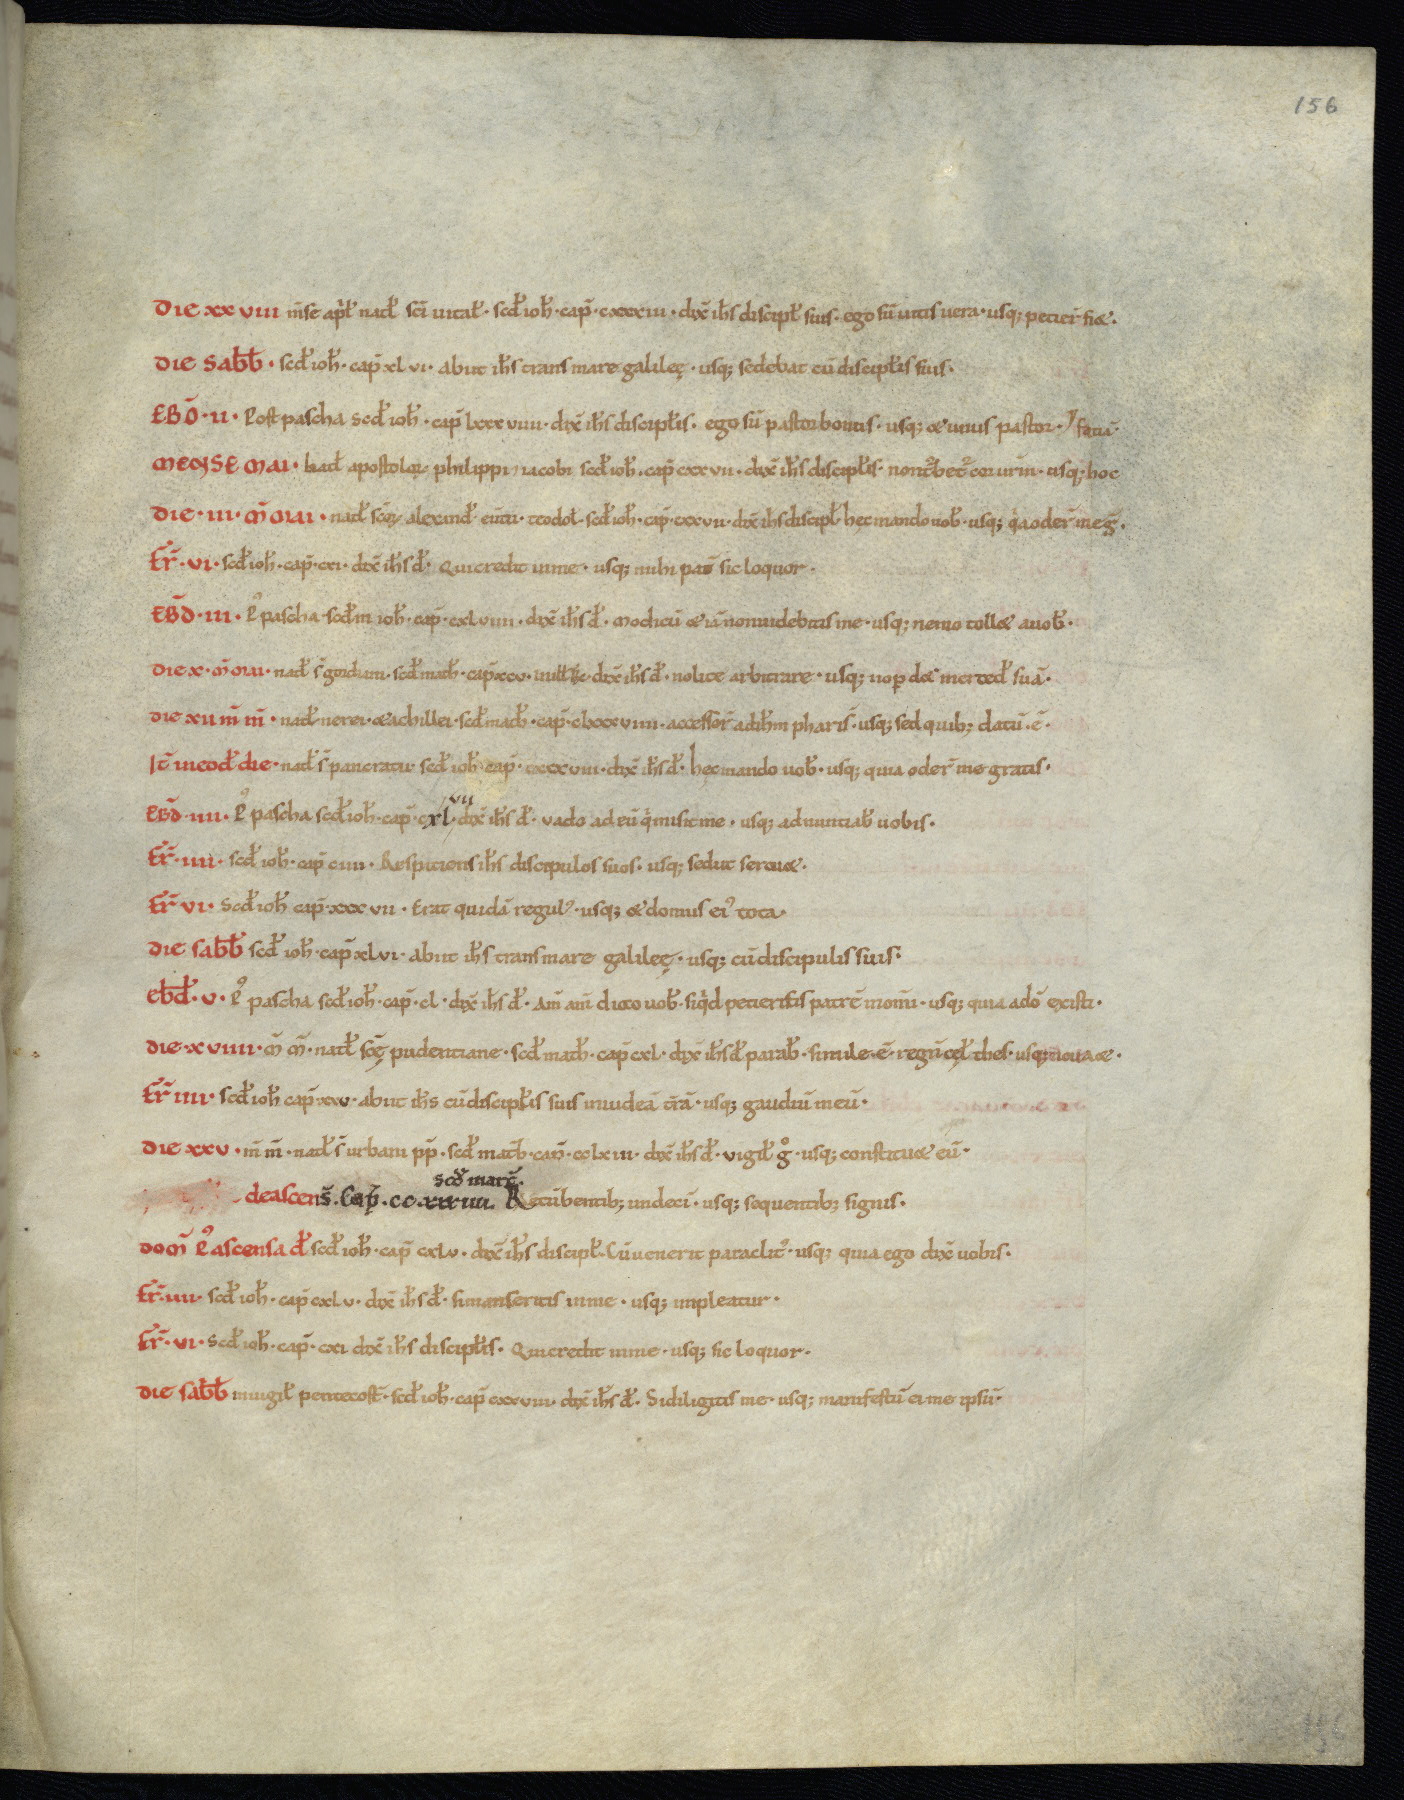 156
Die xxviii mse apl̄ nat̄ sc̄i uital̄· scd̄ ioh̄· cap̄· cxxxiii· dix̄ ih̄s discipl̄ suis· ego sū uitis uera· usq; petier̄ fi&·
Die sabb̄· scd̄ ioh̄· cap̄ xlvi· abiit ih̄s trans mare galileę· usq; sedebat cū discipl̄is suis·
EBD̄· ii· Post pascha scd̄ ioh̄· cap̄ lxxxviiii· dix̄ ih̄s discipl̄is· ego sū pastor bonus· usq; & unus pastor·
MENSE MAI· Nat̄ apostolor̄ philippi iacobi scd̄ ioh̄· cap̄ cxxvii· dix̄ ih̄s discipl̄is· non t̄bet̄ cor ur̄m· usq; hoc faciā
Die· iii· m̄ mai· nat̄ sc̄or̄ alexand̄ euēti· teodol̄· scd̄ ioh̄· cap̄· cxxvii· dix̄ ih̄s discipl̄ hęc mando uob̄· usq; q̄a oder̄ me ḡ·
Fr̄· vi· scd̄ ioh̄· cap̄· cxi· dix̄ ih̄s d̄· Qui credit in me· usq; mihi pat̄ sic loquor·
EBD̄· iii· P' pascha· scd̄m ioh̄· cap̄· cxlviiii· dix̄ ih̄s d̄· modicū & iā non uidebitis me· usq; nemo toll& a uob̄·
Die x· m̄ mai· nat̄ s̄ gordiani· scd̄ math̄· cap̄ xcv· dix̄ ih̄s d̄· nolite arbitrare· usq; n̄ p̄d& merced̄ suā·
Die xii m̄ m̄· nat̄ nerei· & achillei· scd̄ math̄· cap̄· clxxxviiii· accesser̄ ad ih̄m pharis̄· usq; sed quib; datū· ē·
It̄ in eod̄ die· nat̄ s̄ pancratii· scd̄ ioh̄ cap̄· cxxxviii· dix̄ ih̄s d̄· hęc mando uob̄· usq; quia oder̄ me gratis·
EBD̄· iiii· P' pascha scd̄ ioh̄· cap̄· cxl vii· dix̄ ih̄s d̄· vado ad eū q̄ misit me· usq; adnuntiab̄ uobis·
Fr̄· iiii· scd̄ ioh̄· cap̄ ciiii· Respiciens ih̄s discipulos suos· usq; sed ut seru&·
Fr̄ vi· scd̄ ioh̄ cap̄· xxxvii· Erat quidā regul'· usq; & domus ei' tota·
Die sabb̄ scd̄ ioh̄· cap̄ xlvi· abiit ih̄s trans mare galileę· usq; cū discipulis suis·
ebd̄· v· P' pascha scd̄ ioh̄· cap̄· cl· dix̄ ih̄s d̄· Am̄ am̄ dico uob̄· siq̄d petieritis patrē in nom̄· usq; quia a dō existi·
Die xviiii· m̄ m̄· nat̄ sc̄ę pudentiane· scd̄ math̄· cap̄ cxl· dix̄ ih̄s d̄ parab̄· simile ē· regnū cęl̄ thes̄· usq;
Fr̄ iiii· scd̄ ioh̄ cap̄ xxv· abiit ih̄s cū discipl̄is suis in iudeā t̄rā· usq; gaudiū meū·
Die xxv· m̄ m̄· nat̄ s̄ urbani pp̄· scd̄ math̄· cap̄· cclxiii· dix̄ ih̄s d̄· vigil̄ g°· usq; constitu& eū·
scd̄ marc̄·
de ascens̄· Cap̄· cc·xxxiiii· Recūbentib; undeci̅· usq; sequentib; signis·
Dom̄ P' ascensa d̄ scd̄ ioh̄· cap̄ cxlv· dix̄ ih̄s discipl̄· Cū uenerit paraclit'· usq; quia ego dix̄ uobis·
Fr̄· iiii· scd̄ ioh̄· cap̄ cxlv· dix̄ ih̄s d̄· si manseritis in me· usq; impleatur·
Fr̄· vi· scd̄ ioh̄· cap̄· cxi dix̄ ih̄s discipl̄is· Qui credit in me· usq; sic loquor·
Die sabb̄ in uigil̄ pentecost̄· scd̄ ioh̄· cap̄ cxxviii· dix̄ ih̄s d̄· Si diligitis me· usq; manifestū ei me ipsū·